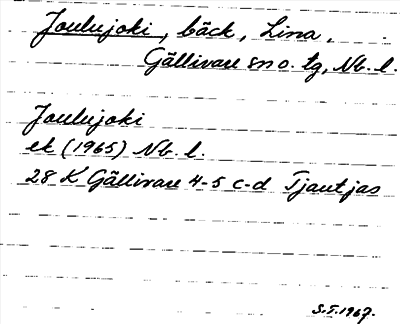 Joulujoki, bäck, Lina,
Gällivare sn o. tg, Nb. l.
Joulujoki
ek (1965) Nb. l.
28 K Gällivare 4-5 c-d Tjautjas
S.I.1967.